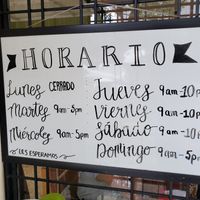 HORARIO
Lunes CERRADO
Martes 9am-5pm
Miércoles 9am-5pm
LES ESPERAMOS
Jueves 9am-10p
Viernes 9am-10p
Sábado 9am-10p
Domingo 9am-5p